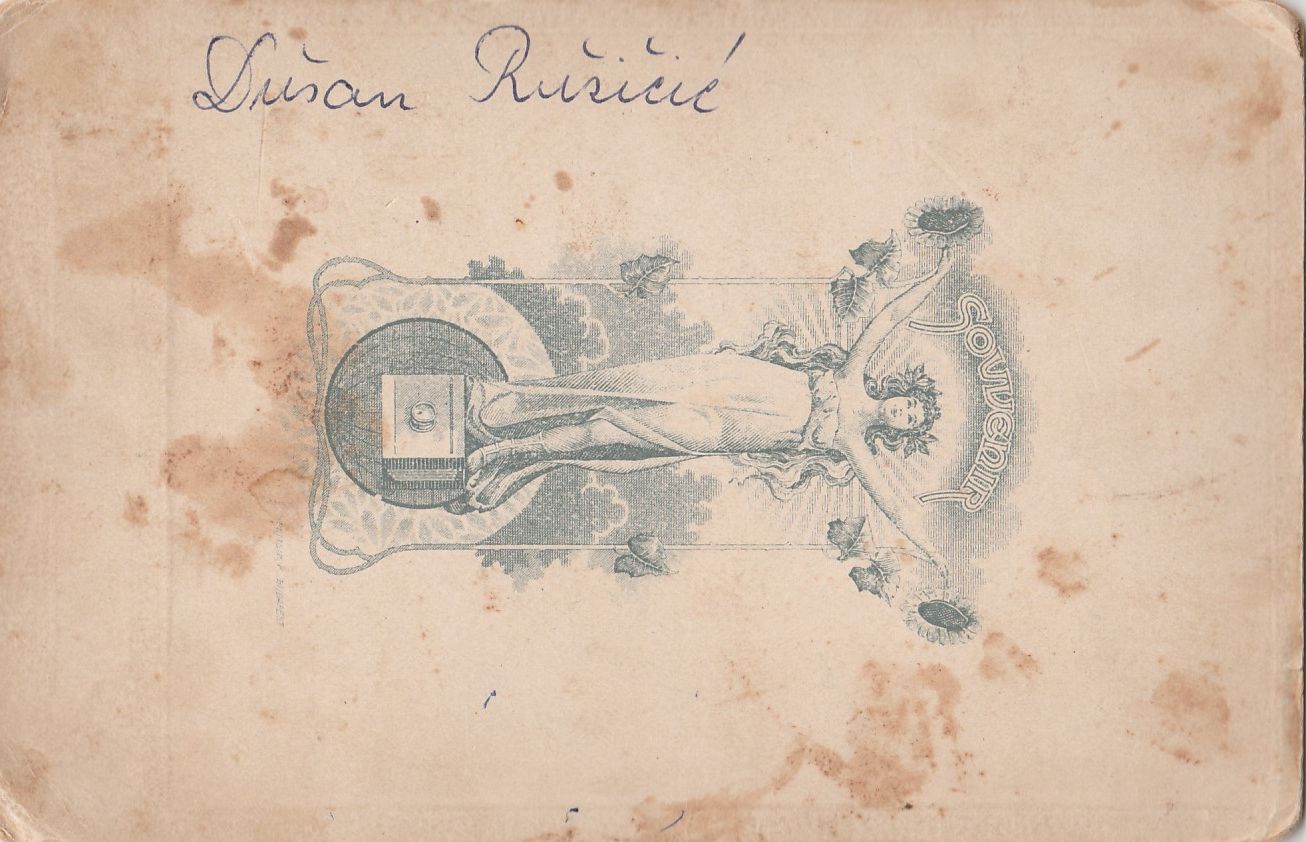 Dušan Ružičić
SOUVENIR